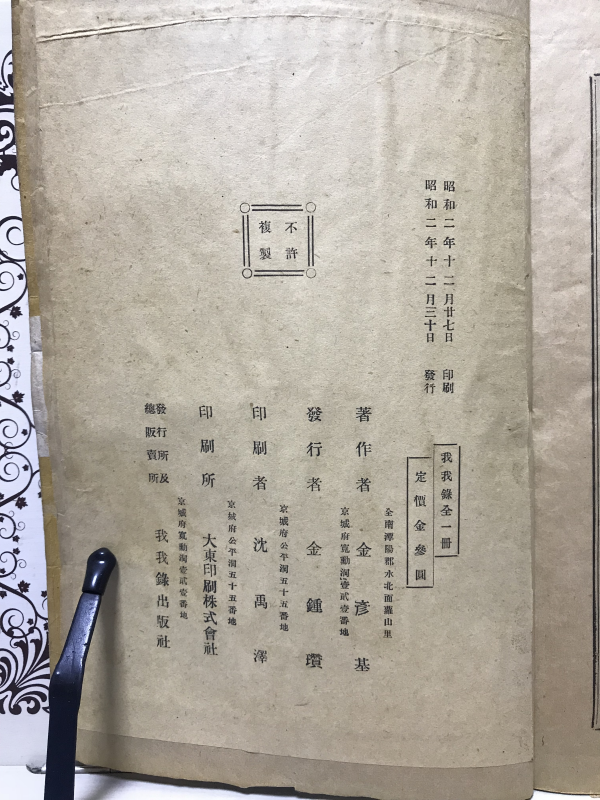 昭和二年十二月廿七日 印刷
昭和二年十二月三十日 發行
不許
複製
我我錄全一冊
定價金參圓
全南潭陽郡水北面羅山里
著作者 金彥基
京城府寬勳洞壹貳壹番地
發行者 金鍾瓚
京城府公平洞五十五番地
印刷者 沈禹澤
京城府公平洞五十五番地
印刷所 大東印刷株式會社
京城府寬勳洞壹貳壹番地
發行所及
總販賣所 我我錄出版社